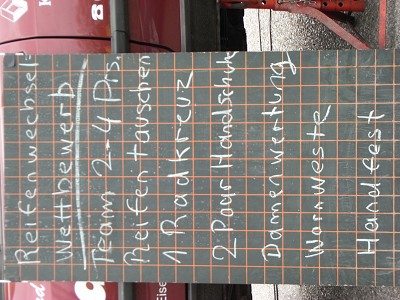 Reifenwechsel-
Wettbewerb
Team 2-4 Prs.
Reifen tauschen
1 Radkreuz
2 Paar Handschuhe
Damenwertung
Warnweste
Handfest